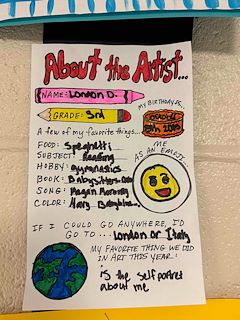 About the Artist...
NAME: London D.
GRADE: 3rd
MY BIRTHDAY IS...
A few of my favorite things...
FOOD: Spaghetti
SUBJECT: Reading
HOBBY: gymnastics
BOOK: Babysitters
SONG: Megan Moroney
COLOR: Navy
ME
AS AN EMOJI
IF I COULD GO ANYWHERE, I'D
GO TO... London or Italy
MY FAVORITE THING WE DID
IN ART THIS YEAR:
is the self portret
about me